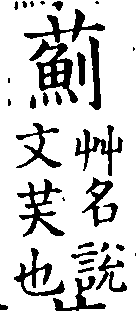 薊
艸名說
文芙也